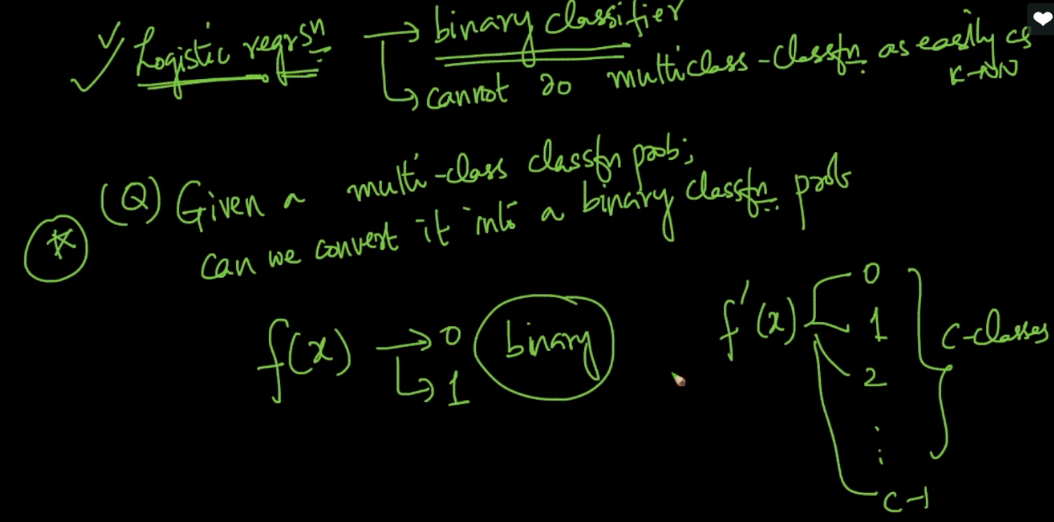 Logistic regrsn → binary classifier
→ cannot do multiclass-classfn. as easily as K-NN
(Q) Given a multi-class classfn prob;
can we convert it into a binary classfn. prob
f(x) → 0 binary
→ 1
f'(x) 0
1
2
⋮
C-1
C-classes